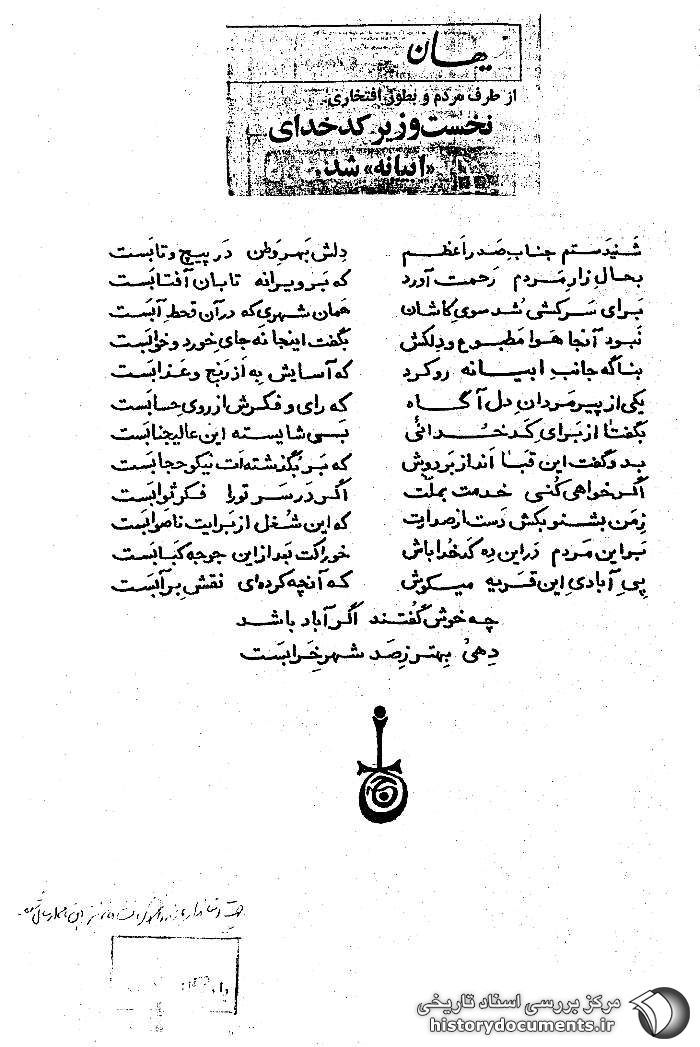 کیهان
از طرف مردم و بطور افتخاری:
نخست وزیر کدخدای
«ابیانه» شد.
شنیدستم جناب صدر اعظم دلش بهر وطن در پیچ و تابست
بحال زار مردم رحمت آورد که بر ویرانه تابان آفتابست
برای سرکشی شد سوی کاشان همان شهری که در آن قحط آبست
نبود آنجا هوا مطبوع و دلکش بگفت اینجا نه جای خورد و خوابست
بناگه جانب ابیانه رو کرد که آسایش به از رنج و عذابست
یکی از پیرمردان دل آگاه که رای و فکرش از روی حسابست
بگفتا از برای کدخدائی بسی شایسته این عالیجنابست
بدو گفت این قبا انداز بر دوش که بر بگذشته‌ات نیکو حجابست
اگر خواهی کنی خدمت بملت اگر در سر تورا فکر ثوابست
ز من بشنو بکش دست از صدارت که این شغل از برایت ناصوابست
بر این مردم در این ده کدخدا باش خوراکت بعد از این جوجه کبابست
پی آبادی این قریه میکوش که آنچه کرده‌ای نقش بر آبست
چه خوش گفتند اگر آباد باشد
دهی بهتر ز صد شهر خرابست
مرکز بررسی اسناد تاریخی
historydocuments.ir